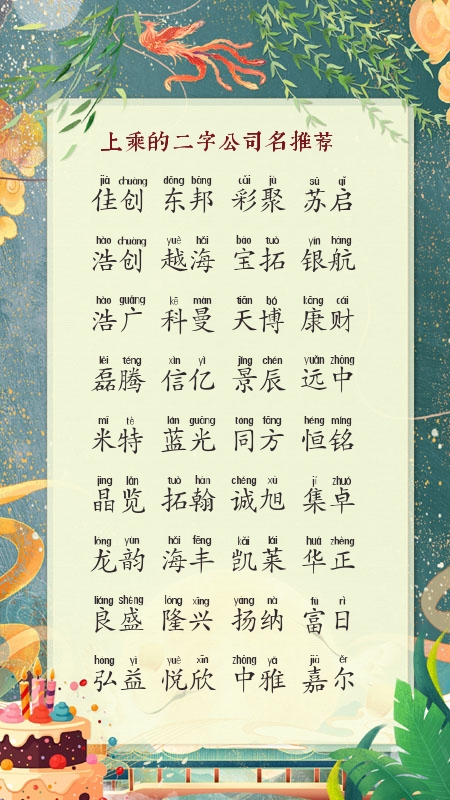 上乘的二字公司名推荐
jiā chuàng dōng bāng cǎi jù sū qǐ
佳创 东邦 彩聚 苏启
hào chuàng yuè hǎi bǎo tuò yín háng
浩创 越海 宝拓 银航
hào guǎng kē màn tiān bó kāng cái
浩广 科曼 天博 康财
lěi téng xìn yì jǐng chén yuǎn zhōng
磊腾 信亿 景辰 远中
mǐ tè lán guāng tóng fāng héng míng
米特 蓝光 同方 恒铭
jīng lǎn tuò hàn chéng xù jí zhuó
晶览 拓翰 诚旭 集卓
lóng yùn hǎi fēng kǎi lái huá zhèng
龙韵 海丰 凯莱 华正
liáng shèng lóng xīng yáng nà fù rì
良盛 隆兴 扬纳 富日
hóng yì yuè xīn zhōng yǎ jiā ěr
弘益 悦欣 中雅 嘉尔